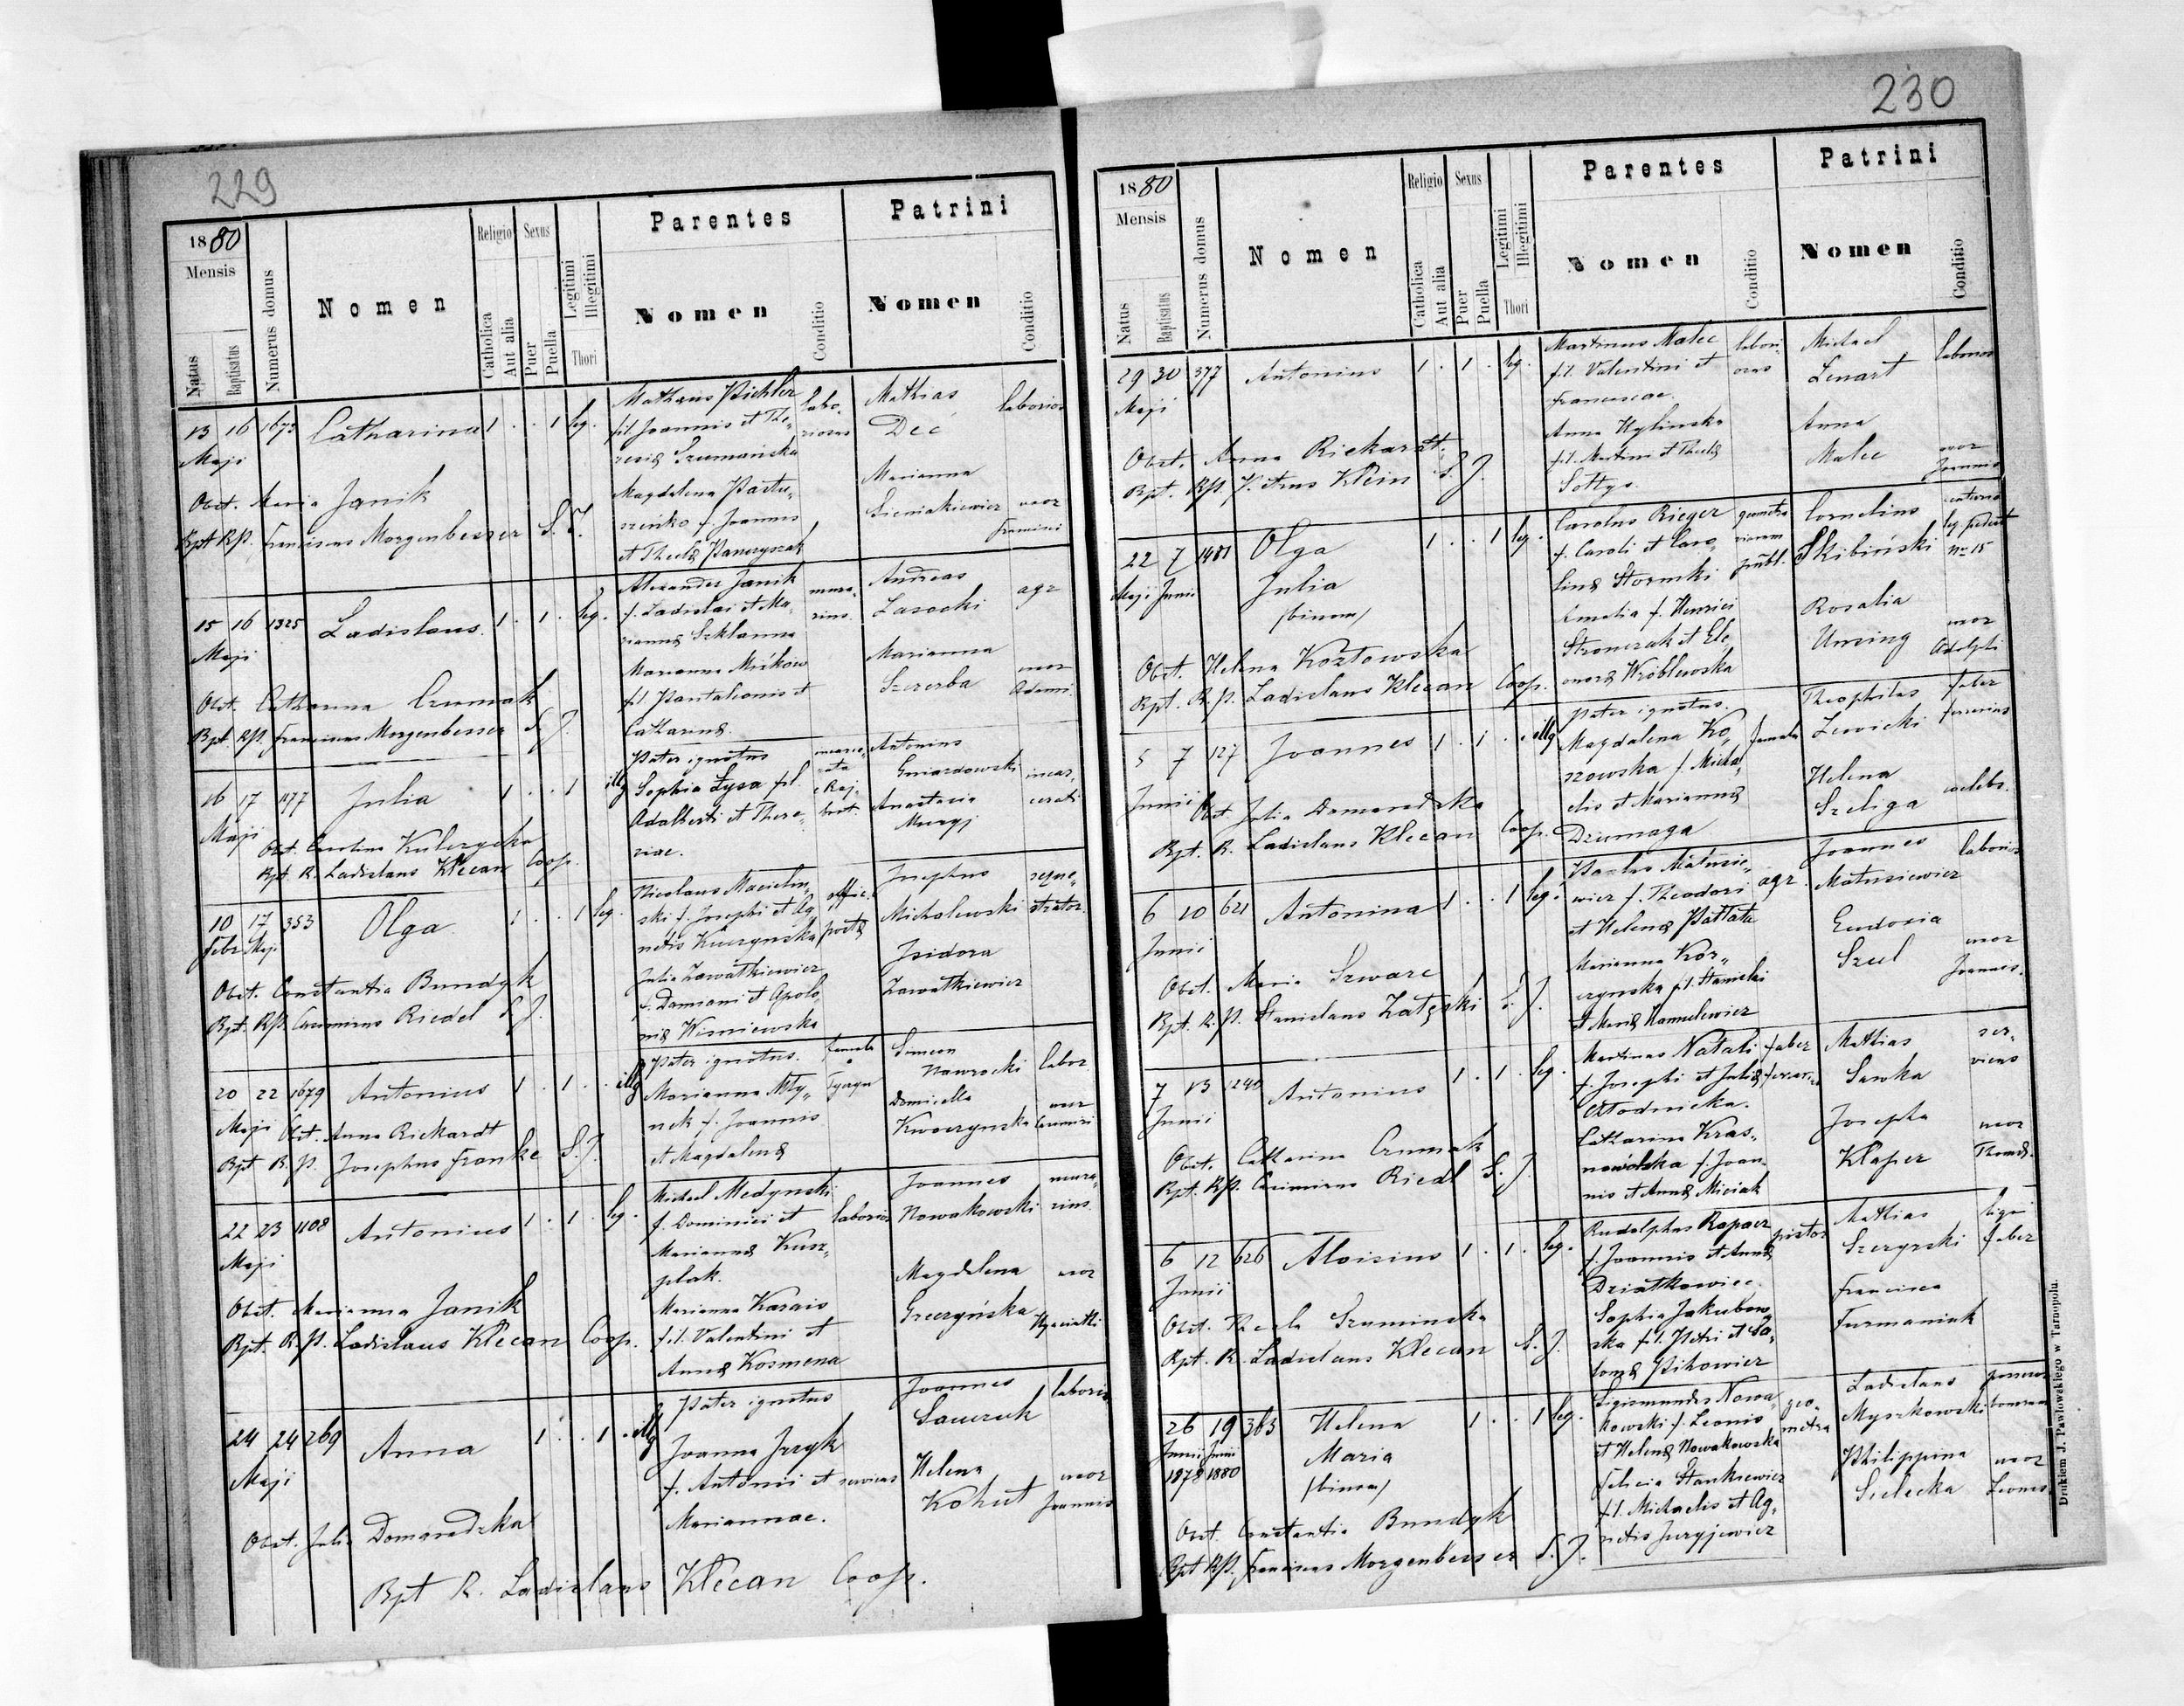 229
1880
Mensis
Natus
Baptisatus
Numerus domus
Nomen
Religio
Catholica
Aut alia
Sexus
Puer
Puella
Legitimi
Illegitimi
Thori
Parentes
Nomen
Conditio
Patrini
Nomen
Conditio
13 16 1673 Catharina 1 . . 1 leg.
Maji
Mathaeus Pichler
fil. Joannis et The-
resiae Szumańska
Magdalena
f. Joannis
et Theclae
labo-
riosus
Mathias
Dec
laborios
Marianna
Sieniakiewicz uxor
Obst. Maria Janik
Bpt RP. Franciscus Morgenbesser S. J.
15 16 1325 Ladislaus. 1 . 1 . leg.
Maji
Alexander Janik
f. Ladislai et Ma-
riannae Szklanna
Marianna Miśków
fil. Pantaleonis et
Catharinae.
mura-
rius.
Andreas
Lasocki
agr
Marianna
Szczerba
uxor
Adami.
Obst. Catharina Czumak
Bpt. RP. Franciscus Morgenbesser S. J.
16 17 1177 Julia 1 . . 1 illg
Maji
Pater ignotus
Sophia Łysa fil.
Adalberti et There-
siae.
Antonius
Gniazdowski
Anastasia
incar-
cerati
Obst. Carolina Kulczycka
Bpt. R. Ladislaus Klecan Coop.
10 17 353 Olga 1 . . 1 leg.
Febr Maji
Nicolaus
ski f. Josephi et Ag-
netis Kuczynska
Julia Zawałkiewicz
f. Damiani et Apolo-
niae Wisniewska
offic.
Josephus
Micholewski
Isidora
Zawałkiewicz
Obst. Constantia Bundyk
Bpt. RP. Casimirus Riedel S J.
20 22 1679 Antonius 1 . 1 . illg
Maji
Pater ignotus.
Marianna Mły-
nek f. Joannis
et Magdalenae
famula
Simeon
Nawrocki
labor
Domicella
Kwaczynska
uxor
Casimiri
Obst. Anna Rickardt
Bpt R. P. Josephus Franke S. J.
22 23 1108 Antonius 1 . 1 . leg.
Maji
Michael Medynski
f. Dominici et
Mariannae Kusz-
plak.
Marianna Karais
fil. Valentini et
Annae Kosmena
laborios
Joannes
Nowakowski
mura-
rius.
Magdalena
Greczyńska
uxor
Hyacinthi
Obst. Marianna Janik
Bpt. R. P. Ladislaus Klecan Coop.
24 24 269 Anna 1 . . 1 . illg
Maji
Pater ignotus
Joanna
f. Antonii et
Mariannae.
Joannes
laborio
Helena
Kohut
uxor
Joannis
Obst. Julia Domaredzka
Bpt R. Ladislaus Klecan Coop.
230
1880
Mensis
Natus
Baptisatus
Numerus domus
Nomen
Religio
Catholica
Aut alia
Sexus
Puer
Puella
Legitimi
Illegitimi
Thori
Parentes
Nomen
Conditio
Patrini
Nomen
Conditio
29 30 377 Antonius 1 . 1 . leg.
Maji
Martinus Malec
fil. Valentini et
Franciscae.
Anna Kylinska
fil. Martini et Theclae
Sołtys.
labori-
osus
Michael
Lenart
laborios
Anna
Malec
uxor
Joannis
Obst. Anna Rickardt.
Bpt. RP. Klein S. J.
22 7 1481 Olga 1 . . 1 leg.
Maji Junii Julia
(binom)
Carolus Rieger
f. Caroli et Caro-
linae Stormki
Amalia f. Henrici
Stromczak et Ele-
onorae Wróblewska
publ.
Cornelius
Skibiński
No 15
Rosalia
uxor
Adolphi
Obst. Helena Kozłowska
Bpt. R. P. Ladislaus Klecan Coop.
5 7 127 Joannes 1 . 1 . . illg
Junii
Pater ignotus.
Magdalena Ko-
szowska f. Micha-
elis et Mariannae
Dziumaga
famula
Theophilus
Lewicki
faber
ferrarius
Helena
Szeliga
caelebs.
Obst. Julia Domaredzka
Bpt. R. Ladislaus Klecan Coop.
6 10 621 Antonina 1 . . 1 leg.
Junii
Paulus Matusie-
wicz f. Theodori
et Helenae Pałłata
Marianna Kor-
czynska fil. Stanislai
et Mariae Kamulewicz
agr.
Joannes
Matusiewicz
laborios
Eudoxia
Szul
uxor
Joannis.
Obst. Maria Szwarc
Bpt. R. P. Stanislaus Załęski S. J.
7 13 1240 Antonius 1 . 1 . leg.
Junii
Martinus Natali
f. Josephi et Juliae
Catharina Kras-
nowolska f. Joan-
nis et Annae Misiak
faber
ferrarius
Mathias
Sawka
ser-
viens
Josepha
Klaper
uxor
Thomae.
Obst. Catharina Czumak
Bpt. RP. Casimirus Riedl S. J.
6 12 626 Aloisius 1 . 1 . leg.
Junii
Rudolphus Ropacz
f. Joannis et Annae
Dziatkowiec.
Sophia Jakubow-
ska fil. Petri et Sa-
lomae Pikowicz
pistor
Mathias
Szczyrski
lign
faber
Francisca
Furmaniak
Obst. Thecla Szuminska
Bpt. R. Ladislaus Klecan S. J.
26 19 365 Helena 1 . . 1 leg.
Junii Junii Maria
1878 1880 (binom)
Sigismundus Nowa-
kowski f. Leonis
et Helenae Nowakowska
Felicia Stankiewicz
fil. Michaelis et Ag-
netis Juryjewicz
geo-
metra
Ladislaus
Myszkowski
Philippina
Sielecka
uxor
Leonis
Obst. Constantia Bundyk
Bpt RP. Franciscus Morgenbesser S. J.
Drukiem J. Pawłowskiego w Tarnopolu.